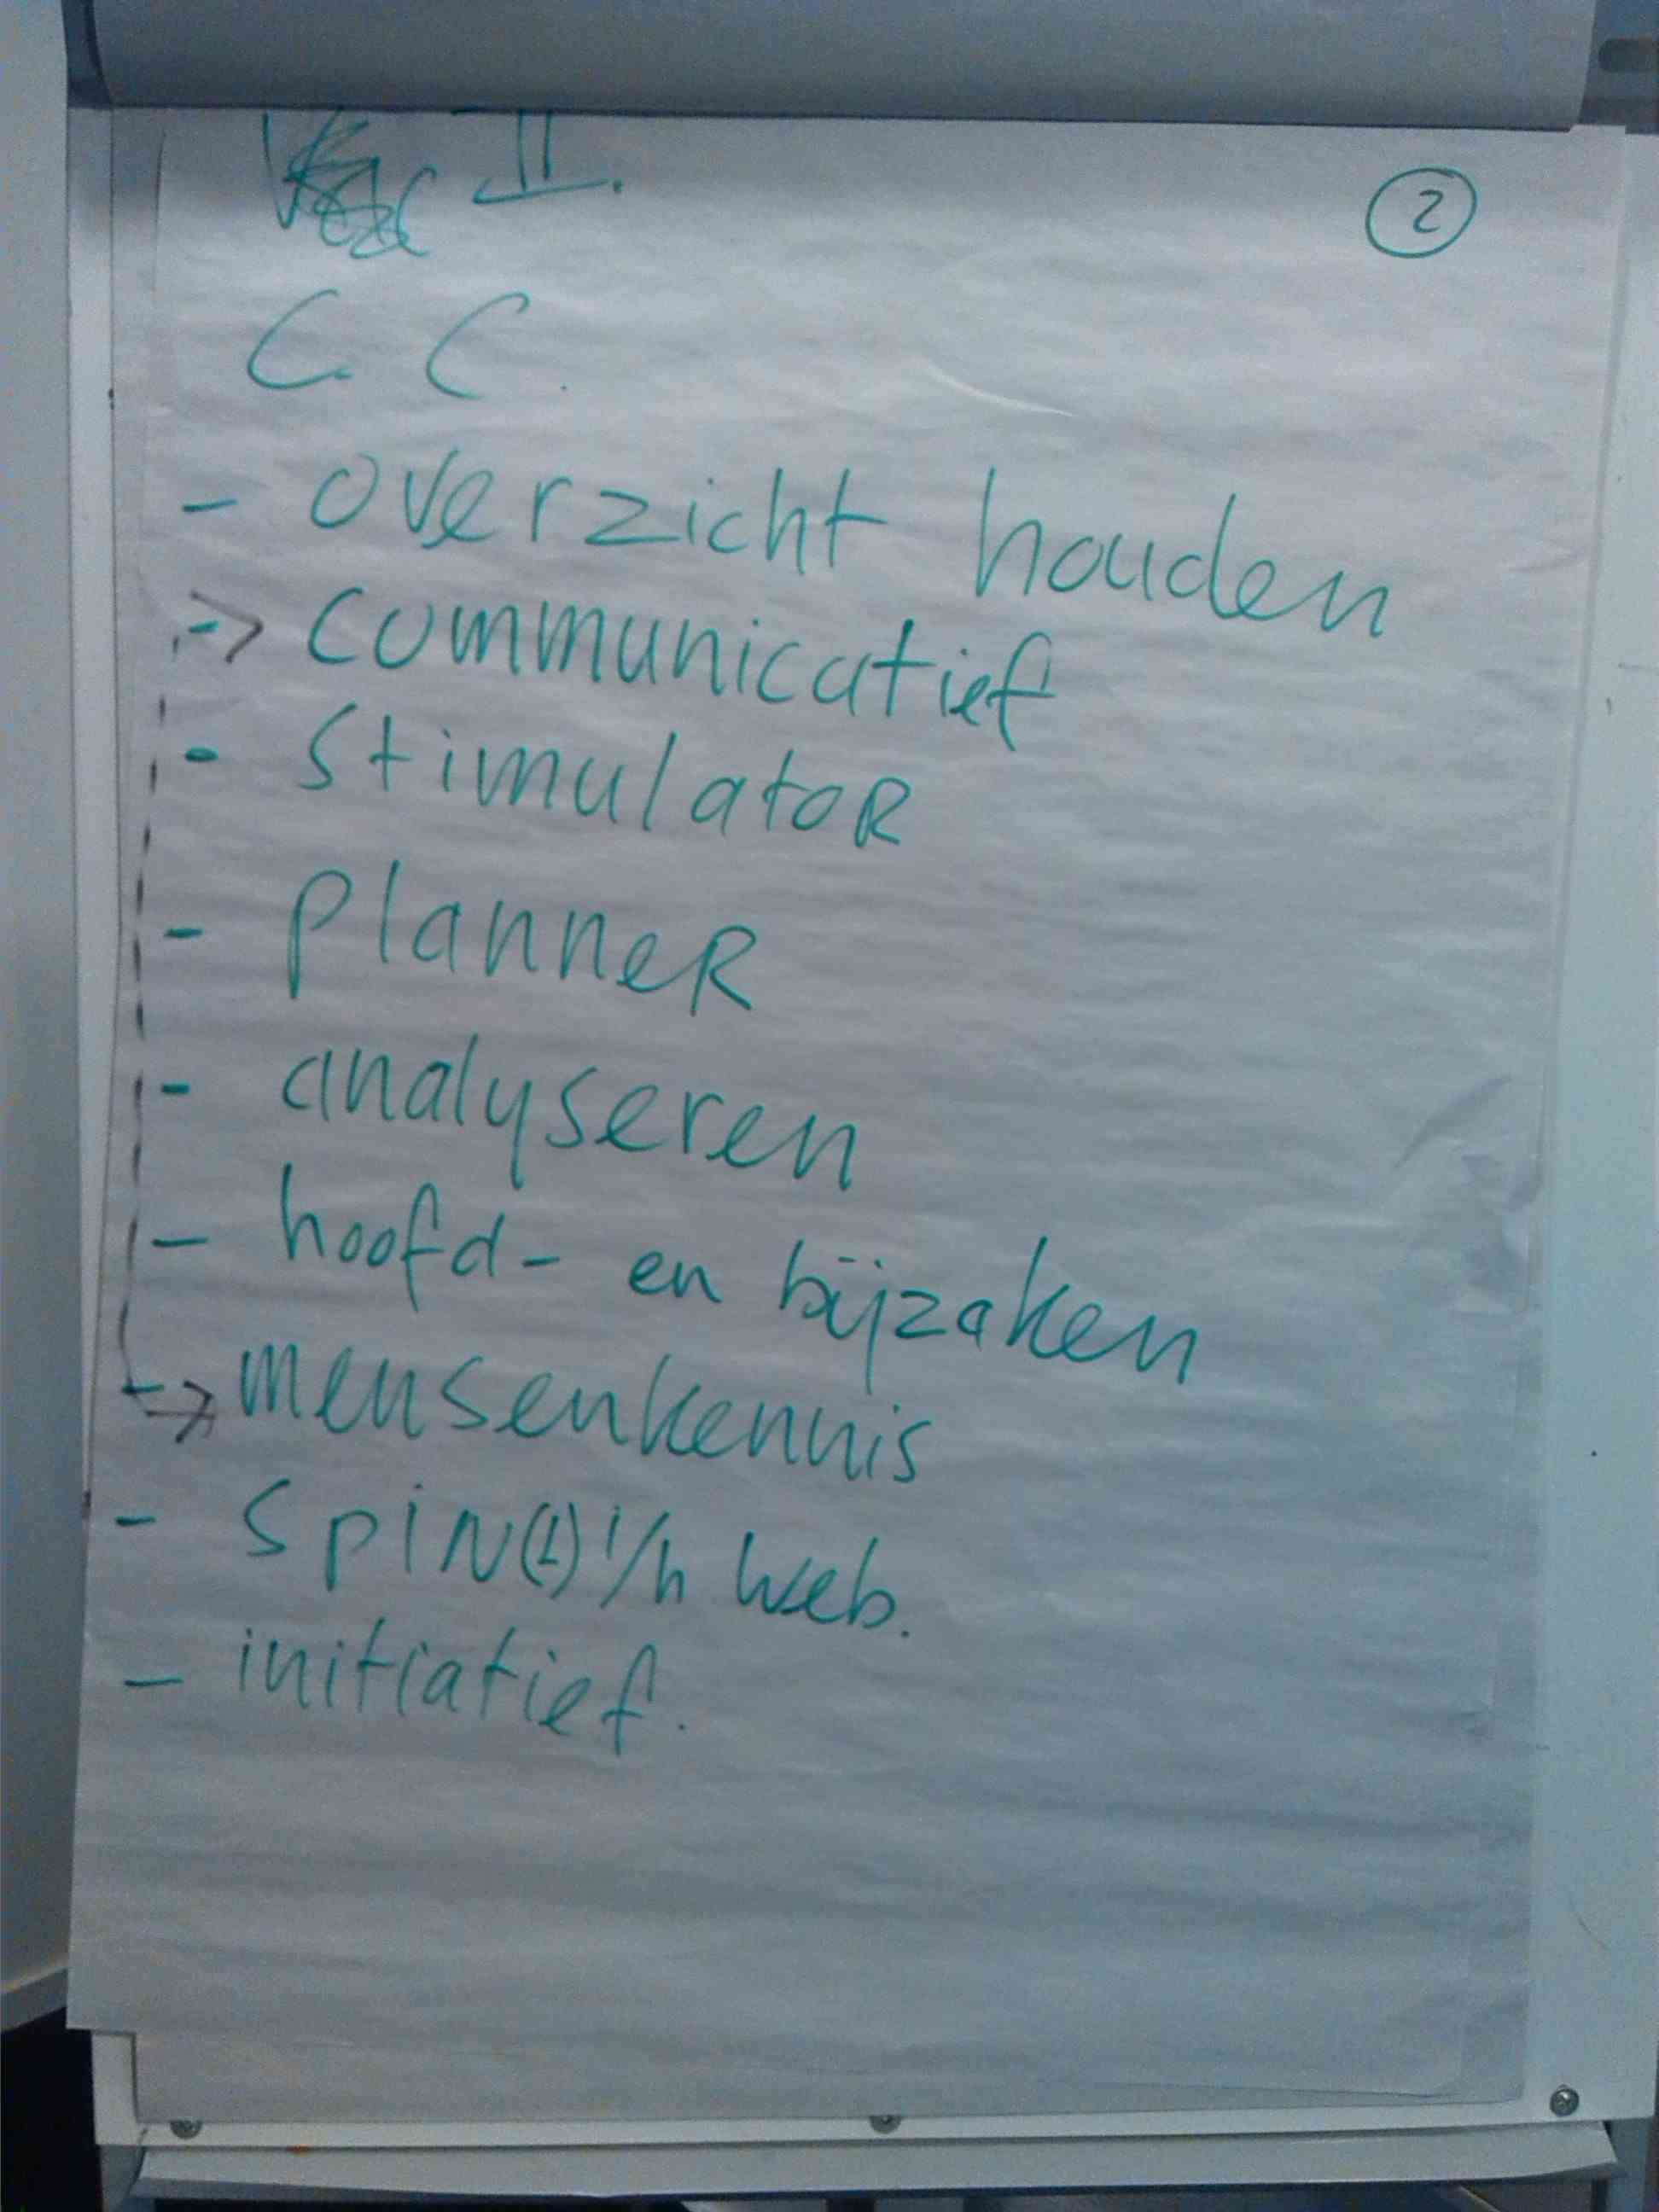 II.
2
C.C.
- overzicht houden
-> communicatief
- stimulatoR
- planneR
- analyseren
- hoofd- en bijzaken
-> mensenkennis
- SpiN(1) i/h web.
- initiatief.